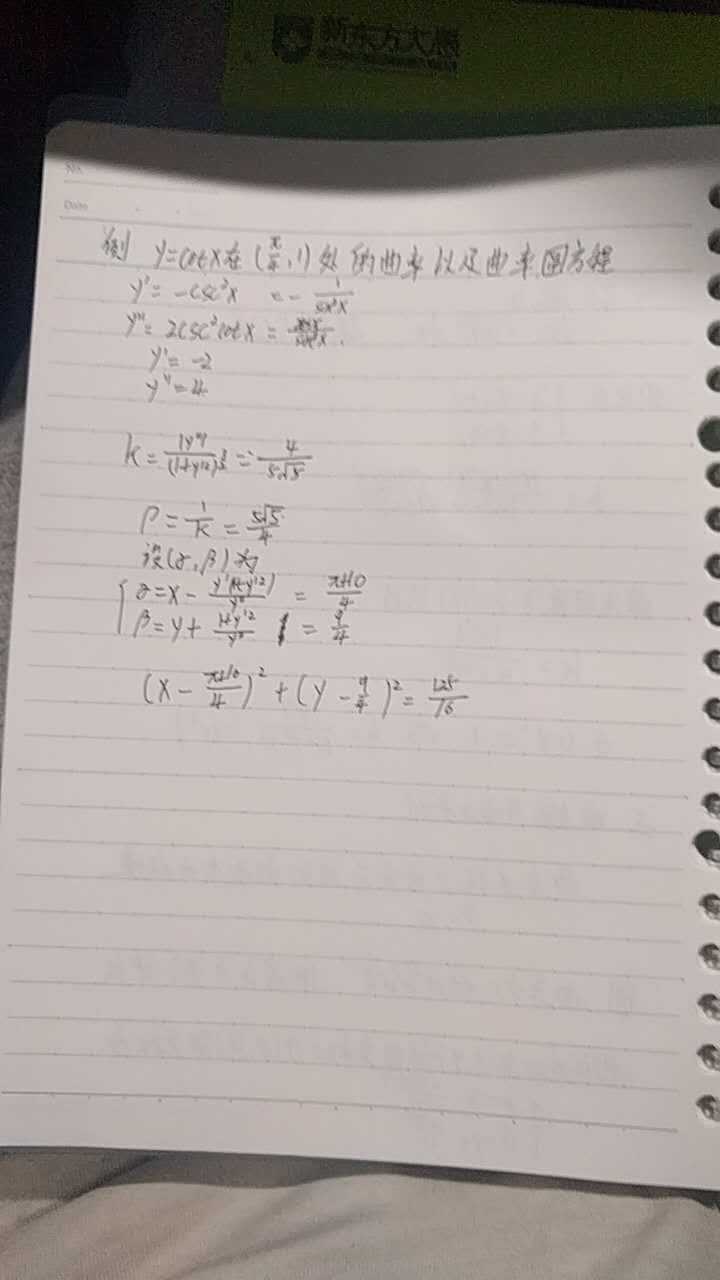 新东方大愚
No.
Date
例 y=cotx在(π/4,1)处的曲率以及曲率圆方程
y'=-csc²x =-1/sin²x
y''=2csc²cotx=
y'=-2
y''=4
k=|y''|/(1+y'²)^(3/2)=4/5√5
ρ=1/k=5√5/4
设(α,β)为
α=x-y'(1+y'²)/y''=π+10/4
β=y+1+y'²/y''=9/4
(x-π+10/4)²+(y-9/4)²=125/16